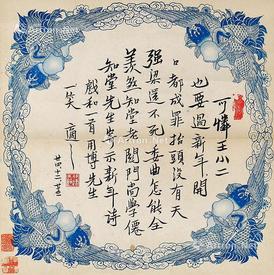 可憐王小二
也要過新年開
口都成罪抬頭沒有天
强梁還不死委曲怎能全
羡煞知堂老關門尚學僊
知堂先生示新年詩
戲和一首用博先生
一笑 適之
廿四十二